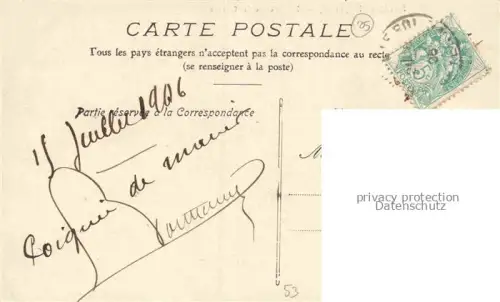 CARTE POSTALE
25
Tous les pays étrangers n'acceptent pas la correspondance au recto
(se renseigner à la poste)
Partie réservée à la Correspondance
15 Juillet 1906
de
privacy protection
Datenschutz
53